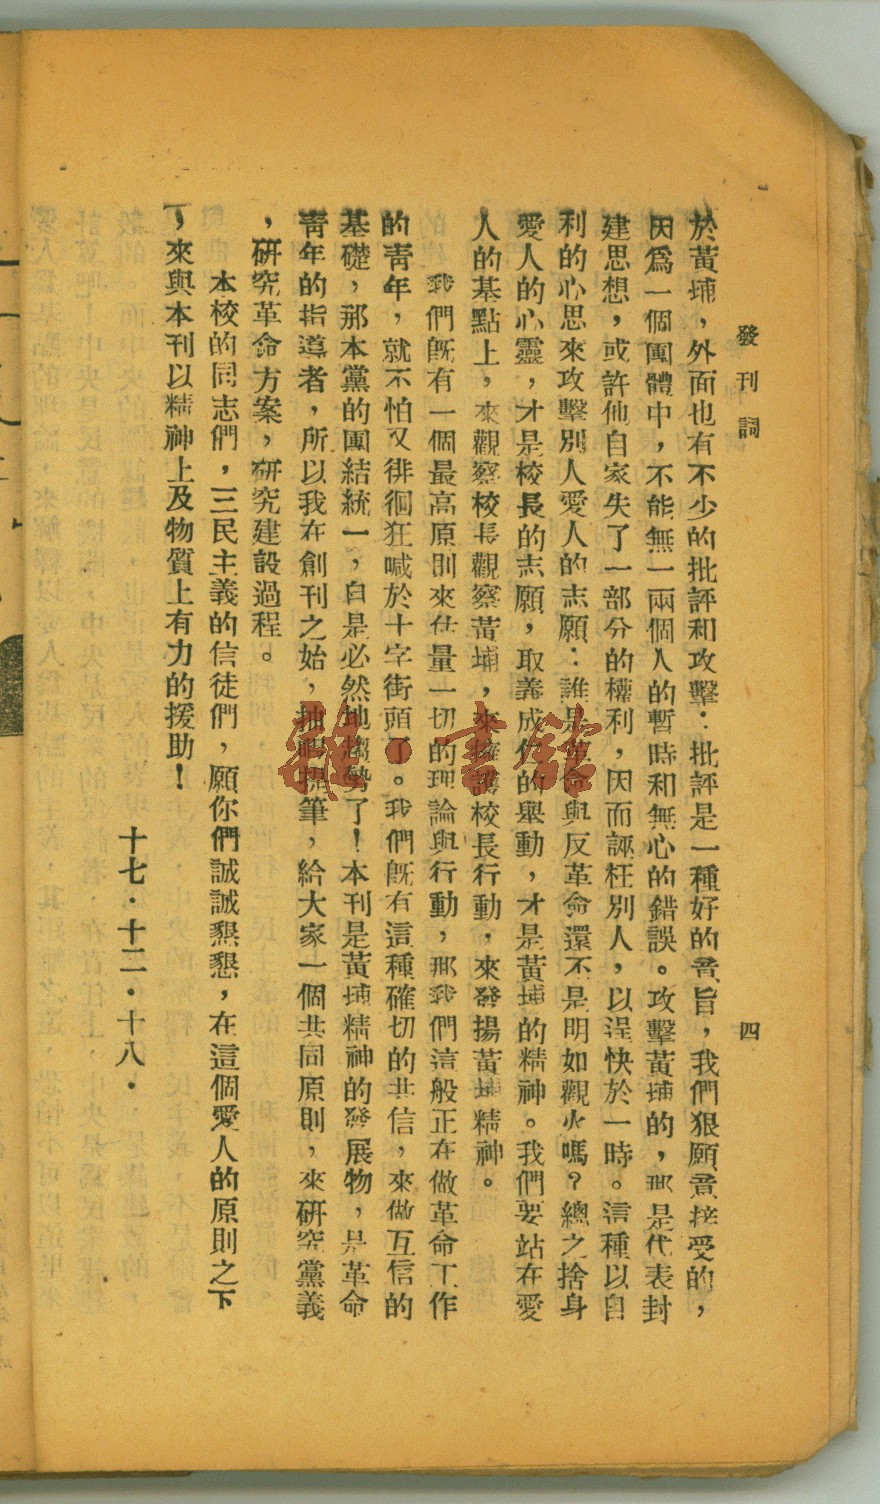 發刊詞
四
於黃埔，外面也有不少的批評和攻擊：批評是一種好的意旨，我們狠願意接受的，
因爲一個團體中，不能無一兩個人的暫時和無心的錯誤。攻擊黃埔的，那是代表封
建思想，或許他自家失了一部分的權利，因而誣枉別人，以逞快於一時。這種以自
利的心思來攻擊別人愛人的志願：誰是革命與反革命還不是明如觀火嗎？總之捨身
愛人的心靈，才是校長的志願，取義成仁的舉動，才是黃埔的精神。我們要站在愛
人的基點上，來觀察校長觀察黃埔，來擁護校長行動，來發揚黃埔精神。
我們旣有一個最高原則來估量一切的理論與行動，那我們這般正在做革命工作
的靑年，就不怕又徘徊狂喊於十字街頭了。我們旣有這種確切的共信，來做互信的
基礎，那本黨的團結統一，自是必然地趨勢了！本刊是黃埔精神的發展物，是革命
靑年的指導者，所以我在創刊之始，抽暇提筆，給大家一個共同原則，來研究黨義
，硏究革命方案，硏究建設過程。
本校的同志們，三民主義的信徒們，願你們誠誠懇懇，在這個愛人的原則之下
，來與本刊以精神上及物質上有力的援助！
十七．十二．十八．
雜·書館